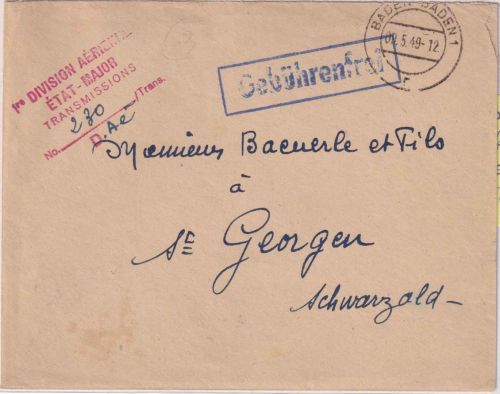 1re DIVISION AÉRIENNE
ÉTAT-MAJOR
TRANSMISSIONS
No. 230 D. Aé /Trans.
Gebührenfrei
BADEN-BADEN 1
02.5.49-12
Messieurs Baeuerle et Fils
à
St Georgen
Schwarzald-